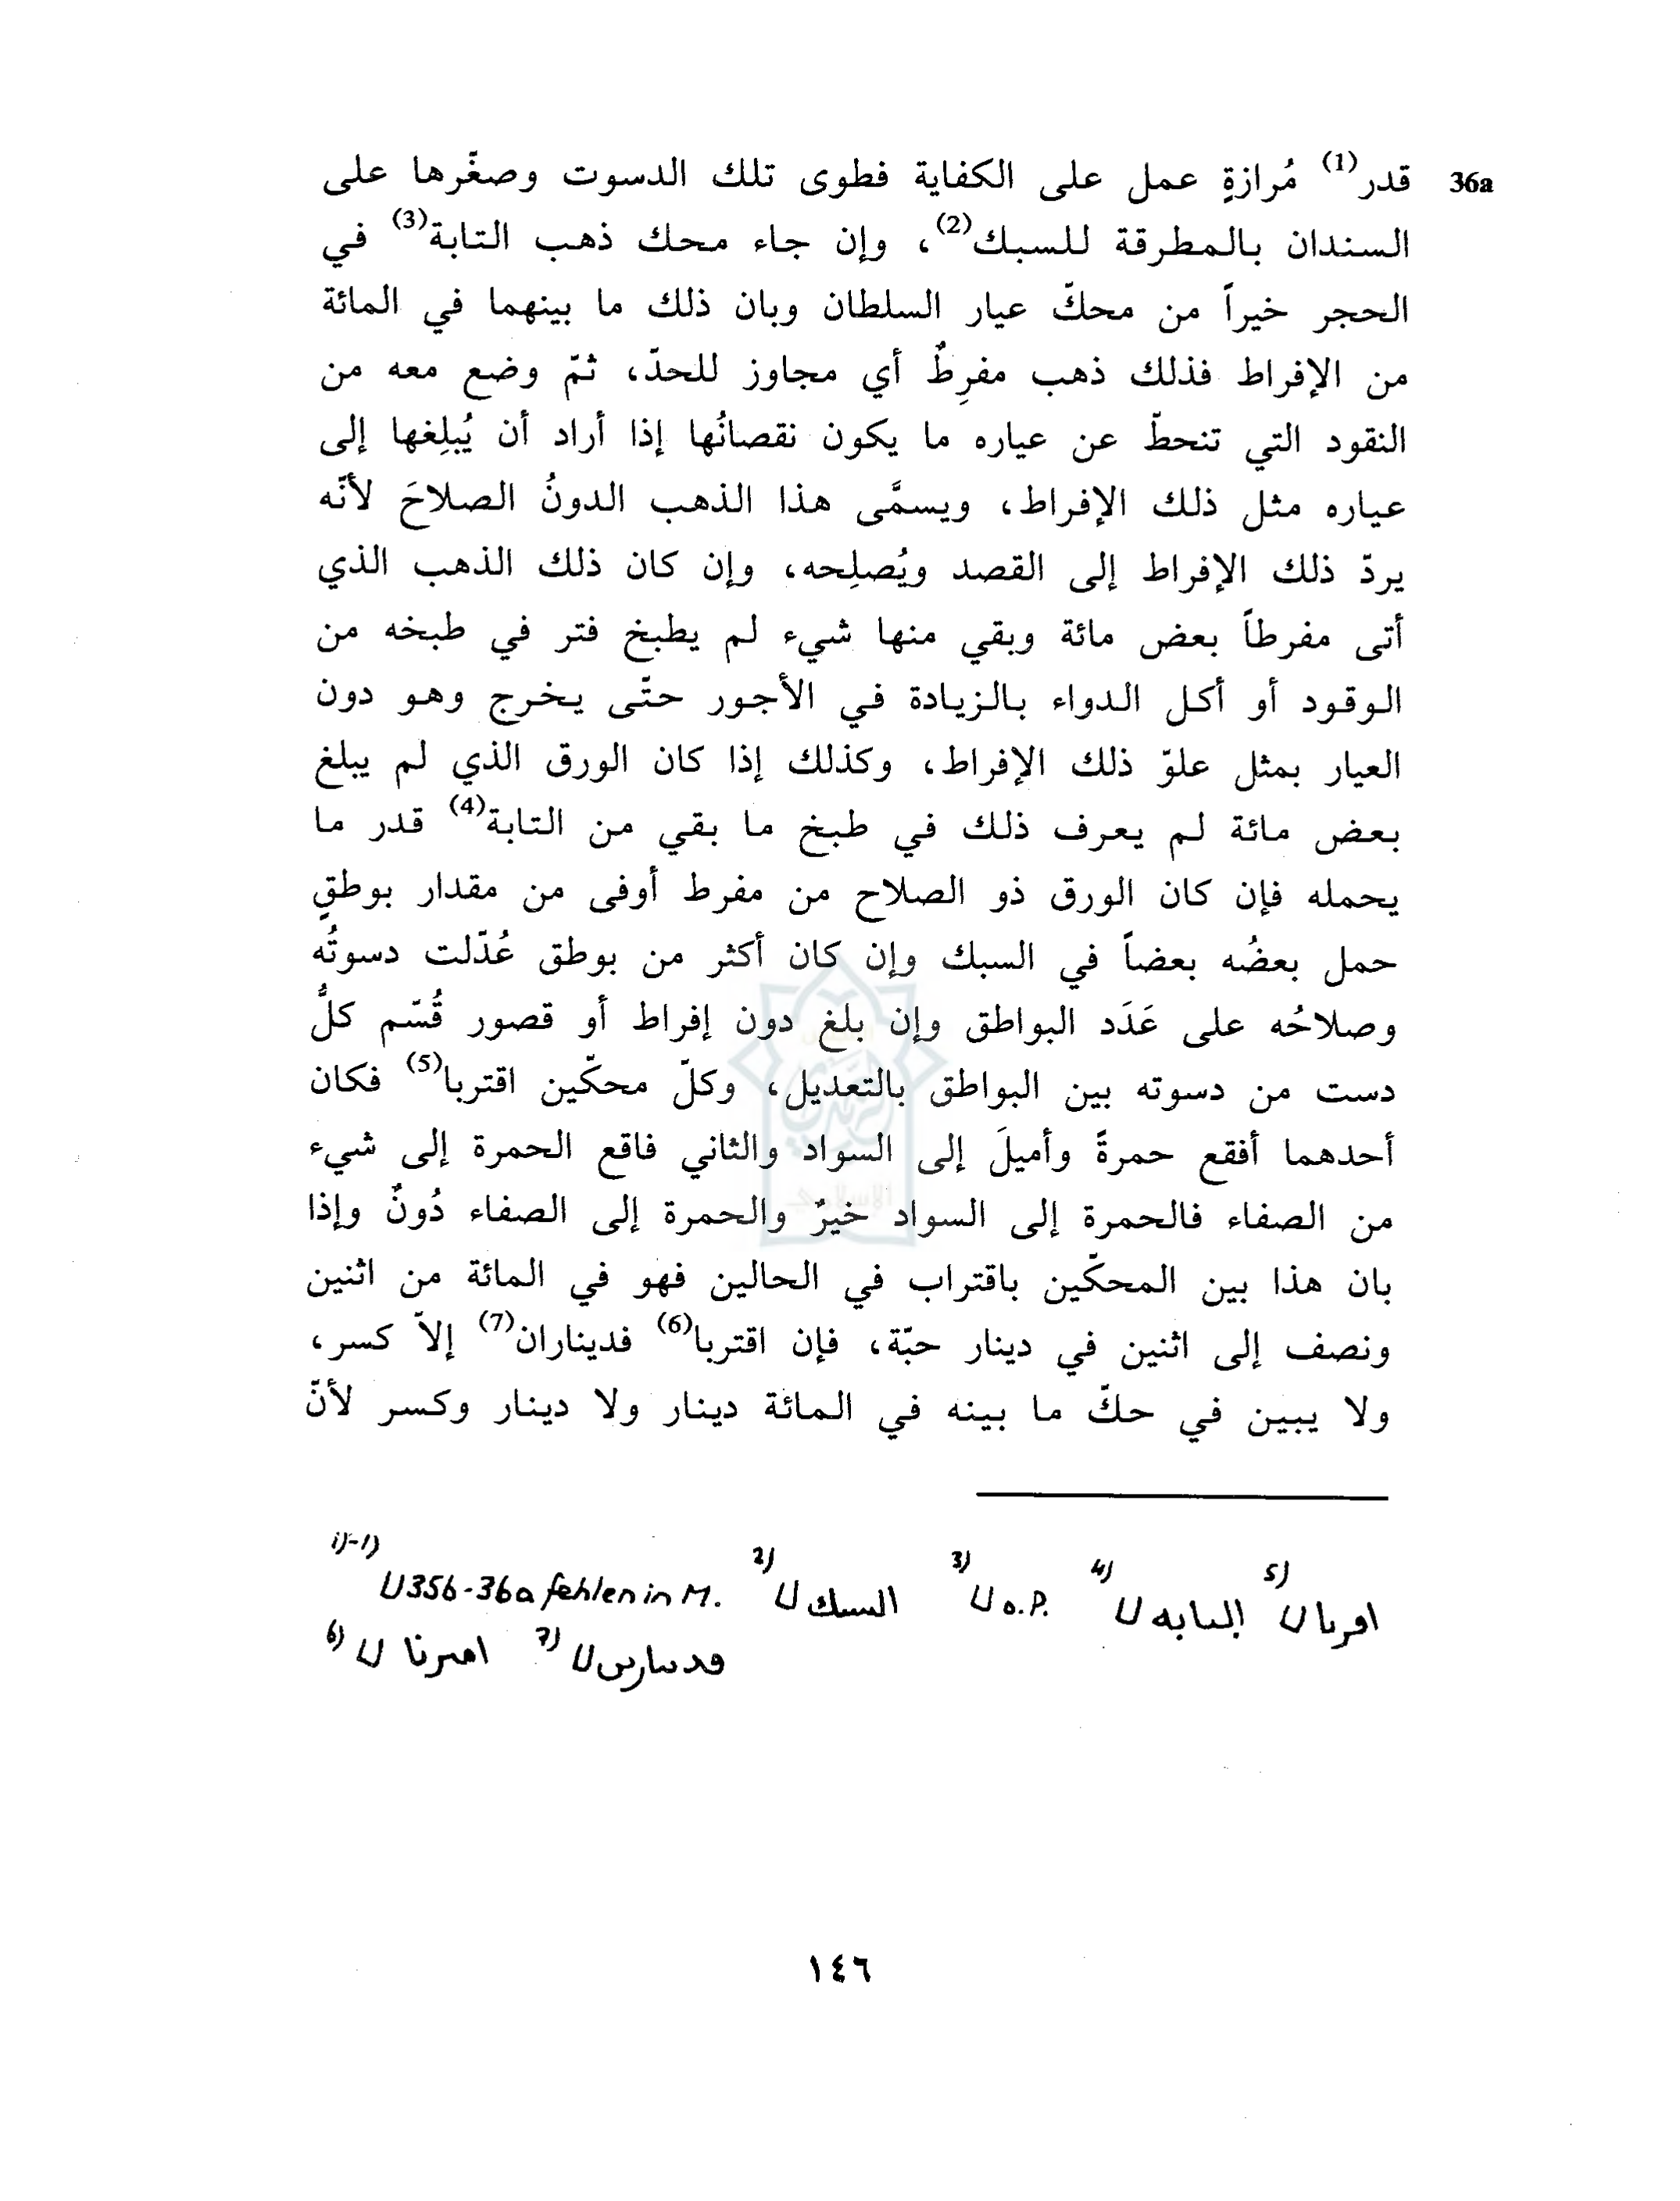 36a قدر(1) مُرازةٍ عمل على الكفاية فطوى تلك الدسوت وصغّرها على
السندان بالمطرقة للسبك(2)، وإن جاء محك ذهب التابة(3) في
الحجر خيراً من محكّ عيار السلطان وبان ذلك ما بينهما في المائة
من الإفراط فذلك ذهب مفرِطٌ أي مجاوز للحدّ، ثمّ وضع معه من
النقود التي تنحطّ عن عياره ما يكون نقصانُها إذا أراد أن يُبلِغها إلى
عياره مثل ذلك الإفراط، ويسمَّى هذا الذهب الدونُ الصلاحَ لأنّه
يردّ ذلك الإفراط إلى القصد ويُصلِحه، وإن كان ذلك الذهب الذي
أتى مفرطاً بعض مائة وبقي منها شيء لم يطبخ فتر في طبخه من
الوقود أو أكل الدواء بالزيادة في الأجور حتّى يخرج وهو دون
العيار بمثل علوّ ذلك الإفراط، وكذلك إذا كان الورق الذي لم يبلغ
بعض مائة لم يعرف ذلك في طبخ ما بقي من التابة(4) قدر ما
يحمله فإن كان الورق ذو الصلاح من مفرط أوفى من مقدار بوطقٍ
حمل بعضُه بعضاً في السبك وإن كان أكثر من بوطق عُدّلت دسوتُه
وصلاحُه على عَدَد البواطق وإن بلغ دون إفراط أو قصور قُسّم كلُّ
دست من دسوته بين البواطق بالتعديل، وكلّ محكّين اقتربا(5) فكان
أحدهما أفقع حمرةً وأميلَ إلى السواد والثاني فاقع الحمرة إلى شيء
من الصفاء فالحمرة إلى السواد خيرٌ والحمرة إلى الصفاء دُونٌ وإذا
بان هذا بين المحكّين باقتراب في الحالين فهو في المائة من اثنين
ونصف إلى اثنين في دينار حبّة، فإن اقتربا(6) فديناران(7) إلاّ كسر،
ولا يبين في حكّ ما بينه في المائة دينار ولا دينار وكسر لأنّ
1)-1) U35b-36a fehlen in M. 2) U السبك 3) U o.P. 4) U 5) U
6) U 7) U
١٤٦